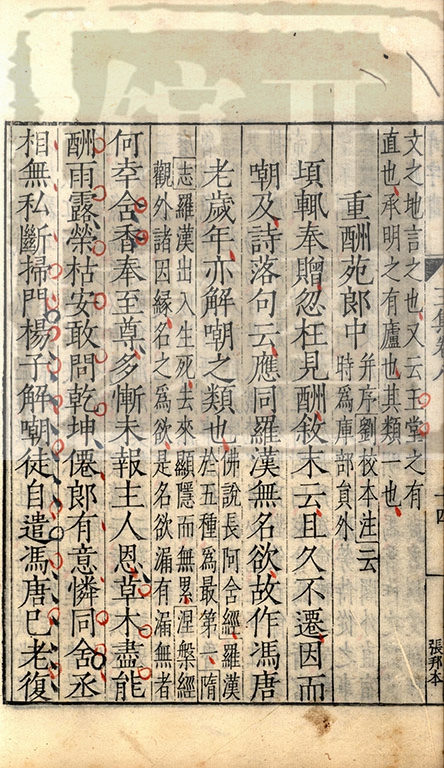 文之地言之也又云玉堂之有
直也承明之有廬也其類一也
重酬苑郎中
并序劉校本注云
時為庫部員外
頃輒奉贈忽枉見酬敘末云且久不遷因而
嘲及詩落句云應同羅漢無名欲故作馮唐
老歲年亦解嘲之類也
佛說長阿含經羅漢
於五種為最第一隋
志羅漢出入生死去來顯隱而無累涅槃經
觀外諸因緣名之為欲是名欲漏有漏無者
何幸含香奉至尊多慚未報主人恩草木盡能
酬雨露榮枯安敢問乾坤僊郎有意憐同舍丞
相無私斷掃門楊子解嘲徒自遣馮唐已老復
四
張邦本